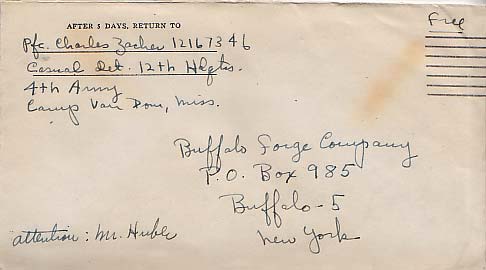 AFTER 5 DAYS, RETURN TO
Free
Pfc. Charles Zacher 12167346
Casual Det. 12th Hdqtrs.
4th Army
Camp Van Dorn, Miss.
Buffalo Forge Company
P.O. Box 985
Buffalo - 5
New York
attention: Mr. Huber